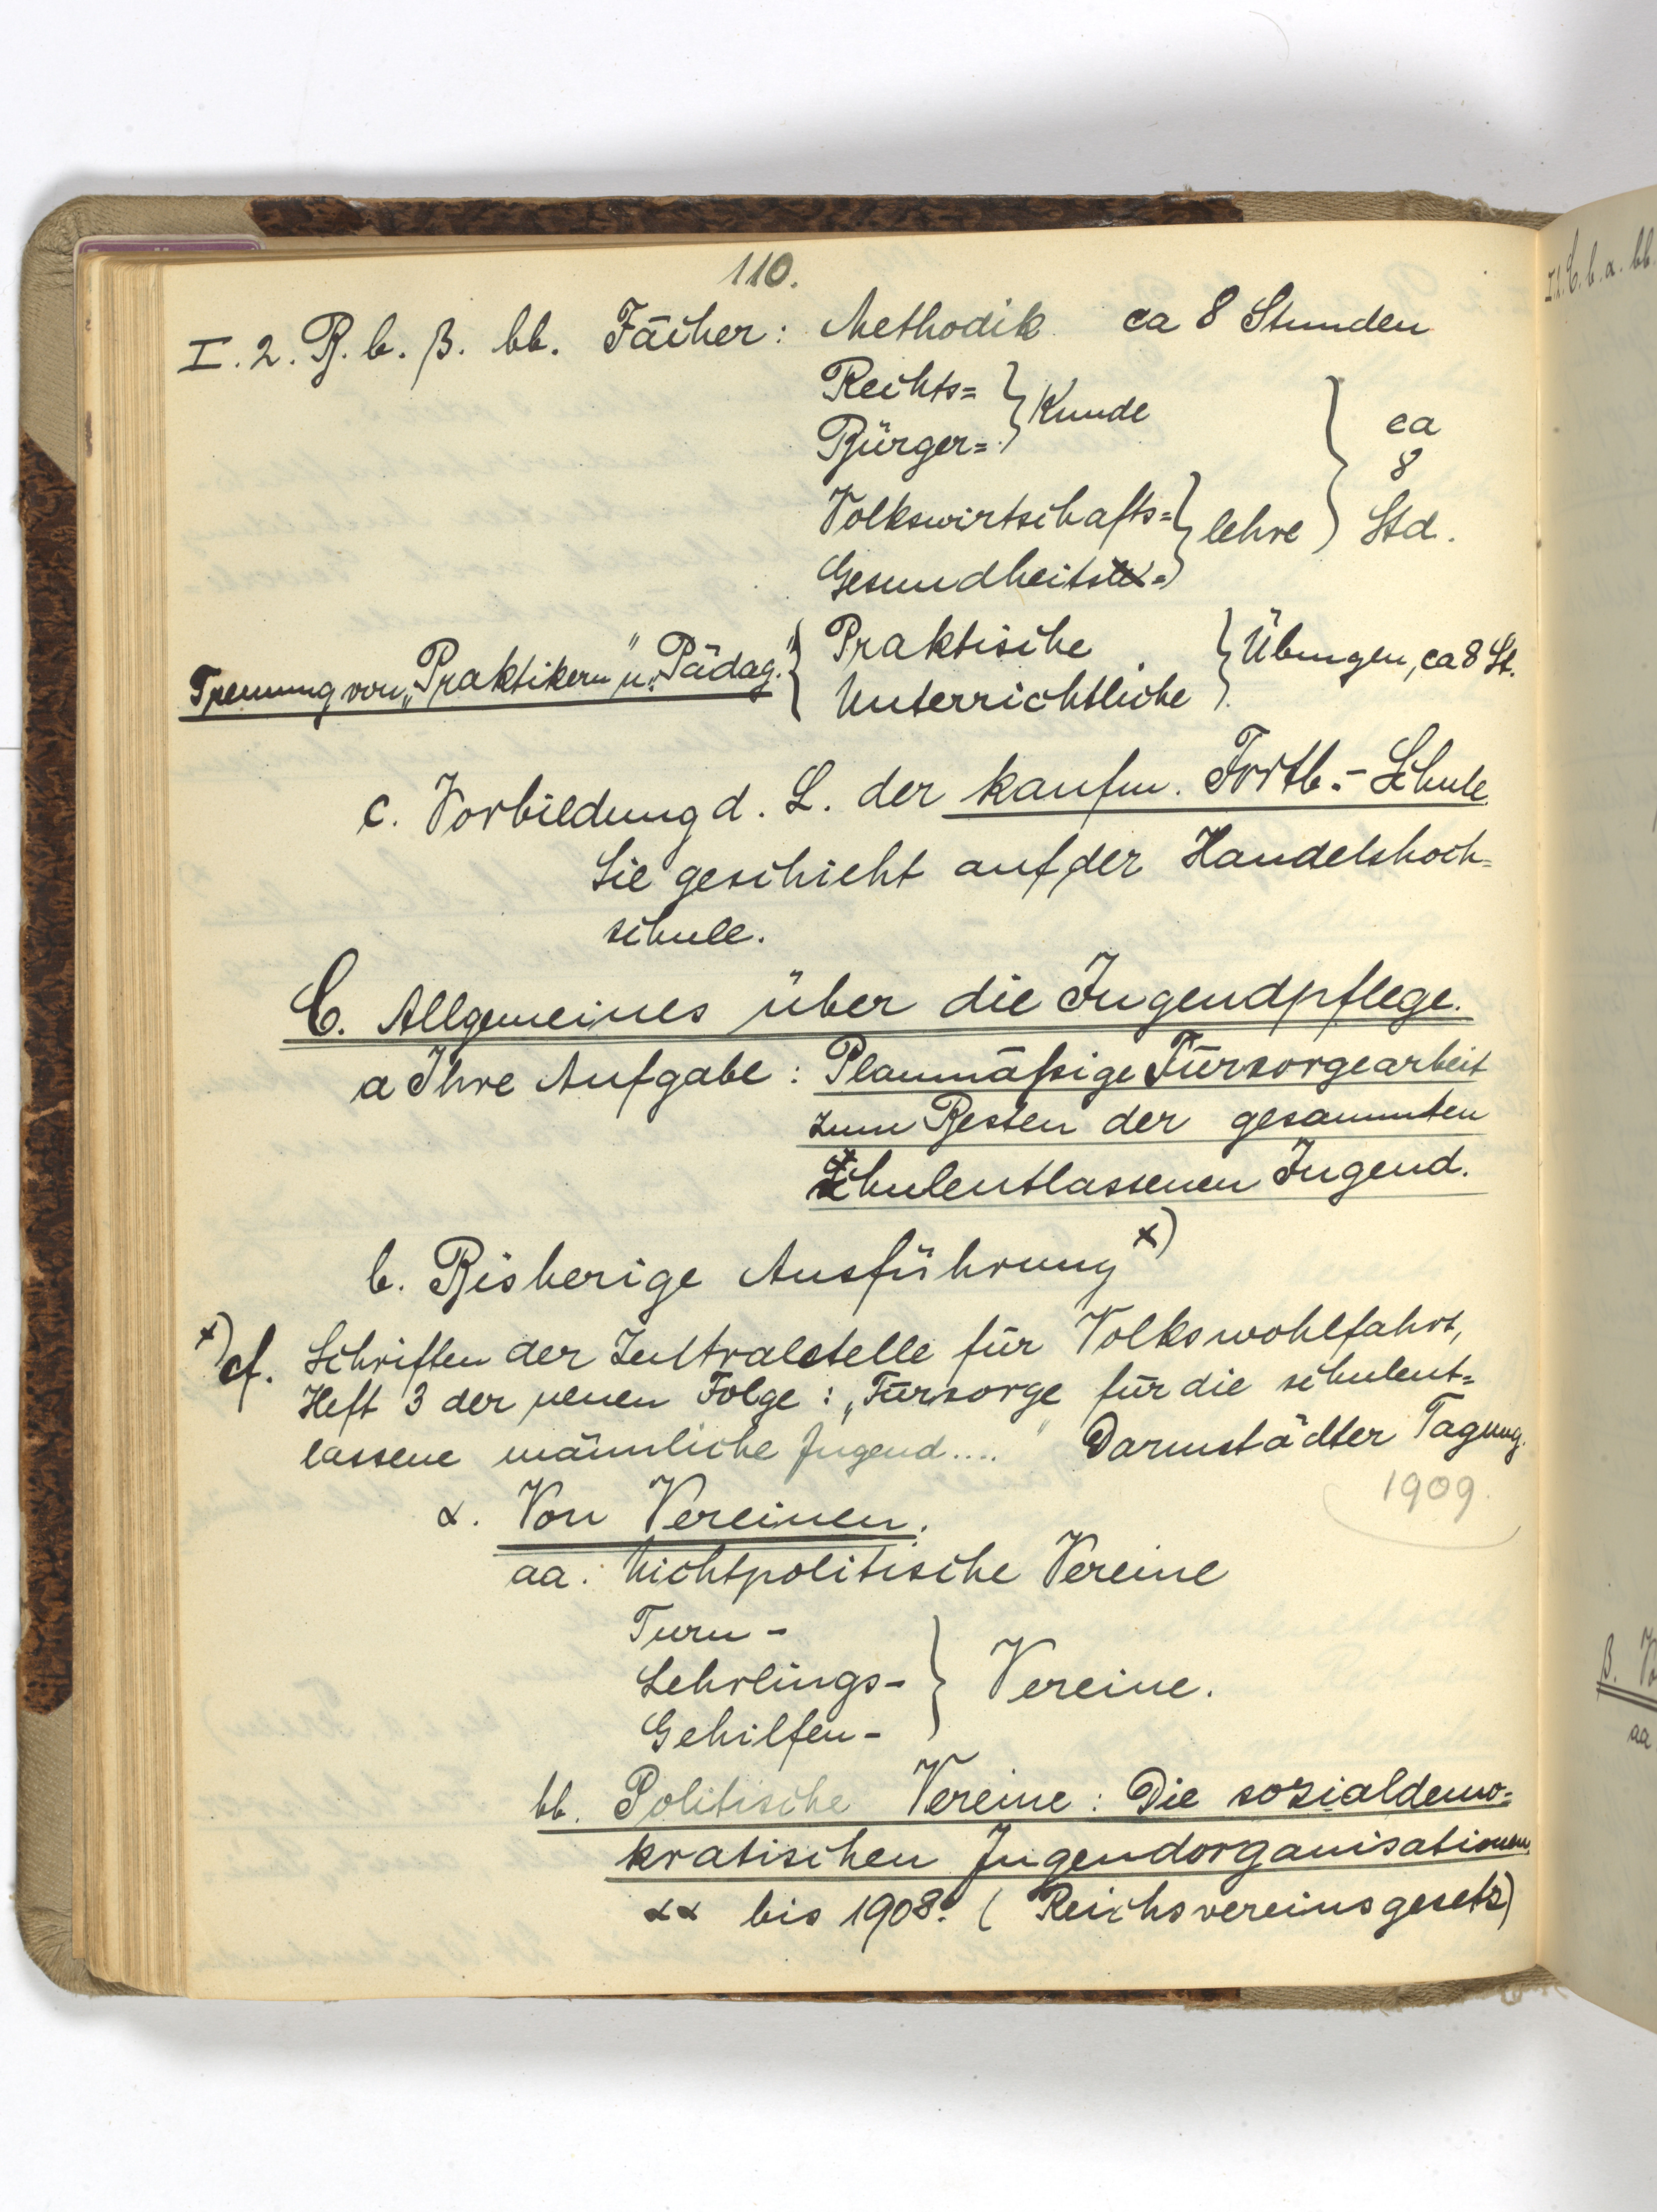 110.
I. 2. B. b. β. bb. Fächer: Methodik ca 8 Stunden
Rechts= } Kunde
Bürger=
Volkswirtschafts= } lehre } ca 8 Std.
Gesundheits=
Trennung von „Praktikern" u. „Pädag." { Praktische } Übungen, ca 8 St.
Unterrichtliche
c. Vorbildung d. L. der kaufm. Fortb.-Schule
Sie geschieht auf der Handelshoch=
schule.
C. Allgemeines über die Jugendpflege.
a Ihre Aufgabe: Planmäßige Fürsorgearbeit
zum Besten der gesammten
schulentlassenen Jugend.
b. Bisherige Ausführung x)
x) cf. Schriften der Zentralstelle für Volkswohlfahrt,
Heft 3 der neuen Folge: „Fürsorge für die schulent=
lassene männliche Jugend...." Darmstädter Tagung.
1909.
α. Von Vereinen.
aa. Nichtpolitische Vereine
Turn-
Lehrlings- } Vereine.
Gehilfen-
bb. Politische Vereine: Die sozialdemo=
kratischen Jugendorganisationen
αα bis 1908. (Reichsvereinsgesetz)
I. 2. C. b. α. bb.
β. Vo
aa